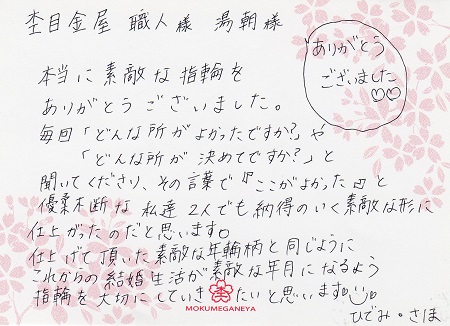 杢目金屋 職人様 湯朝様
ありがとう
ございました♡♡
本当に素敵な指輪を
ありがとうございました。
毎回「どんな所がよかったですか?」や
「どんな所が決めてですか?」と
聞いてくださり、その言葉で『ここがよかった』と
優柔不断な私達2人でも納得のいく素敵な形に
仕上がったのだと思います。
仕上げて頂いた素敵な年輪柄と同じように
これからの結婚生活が素敵な年月になるよう
指輪を大切にしていきたいと思います。
MOKUMEGANEYA
ひでみ・さほ